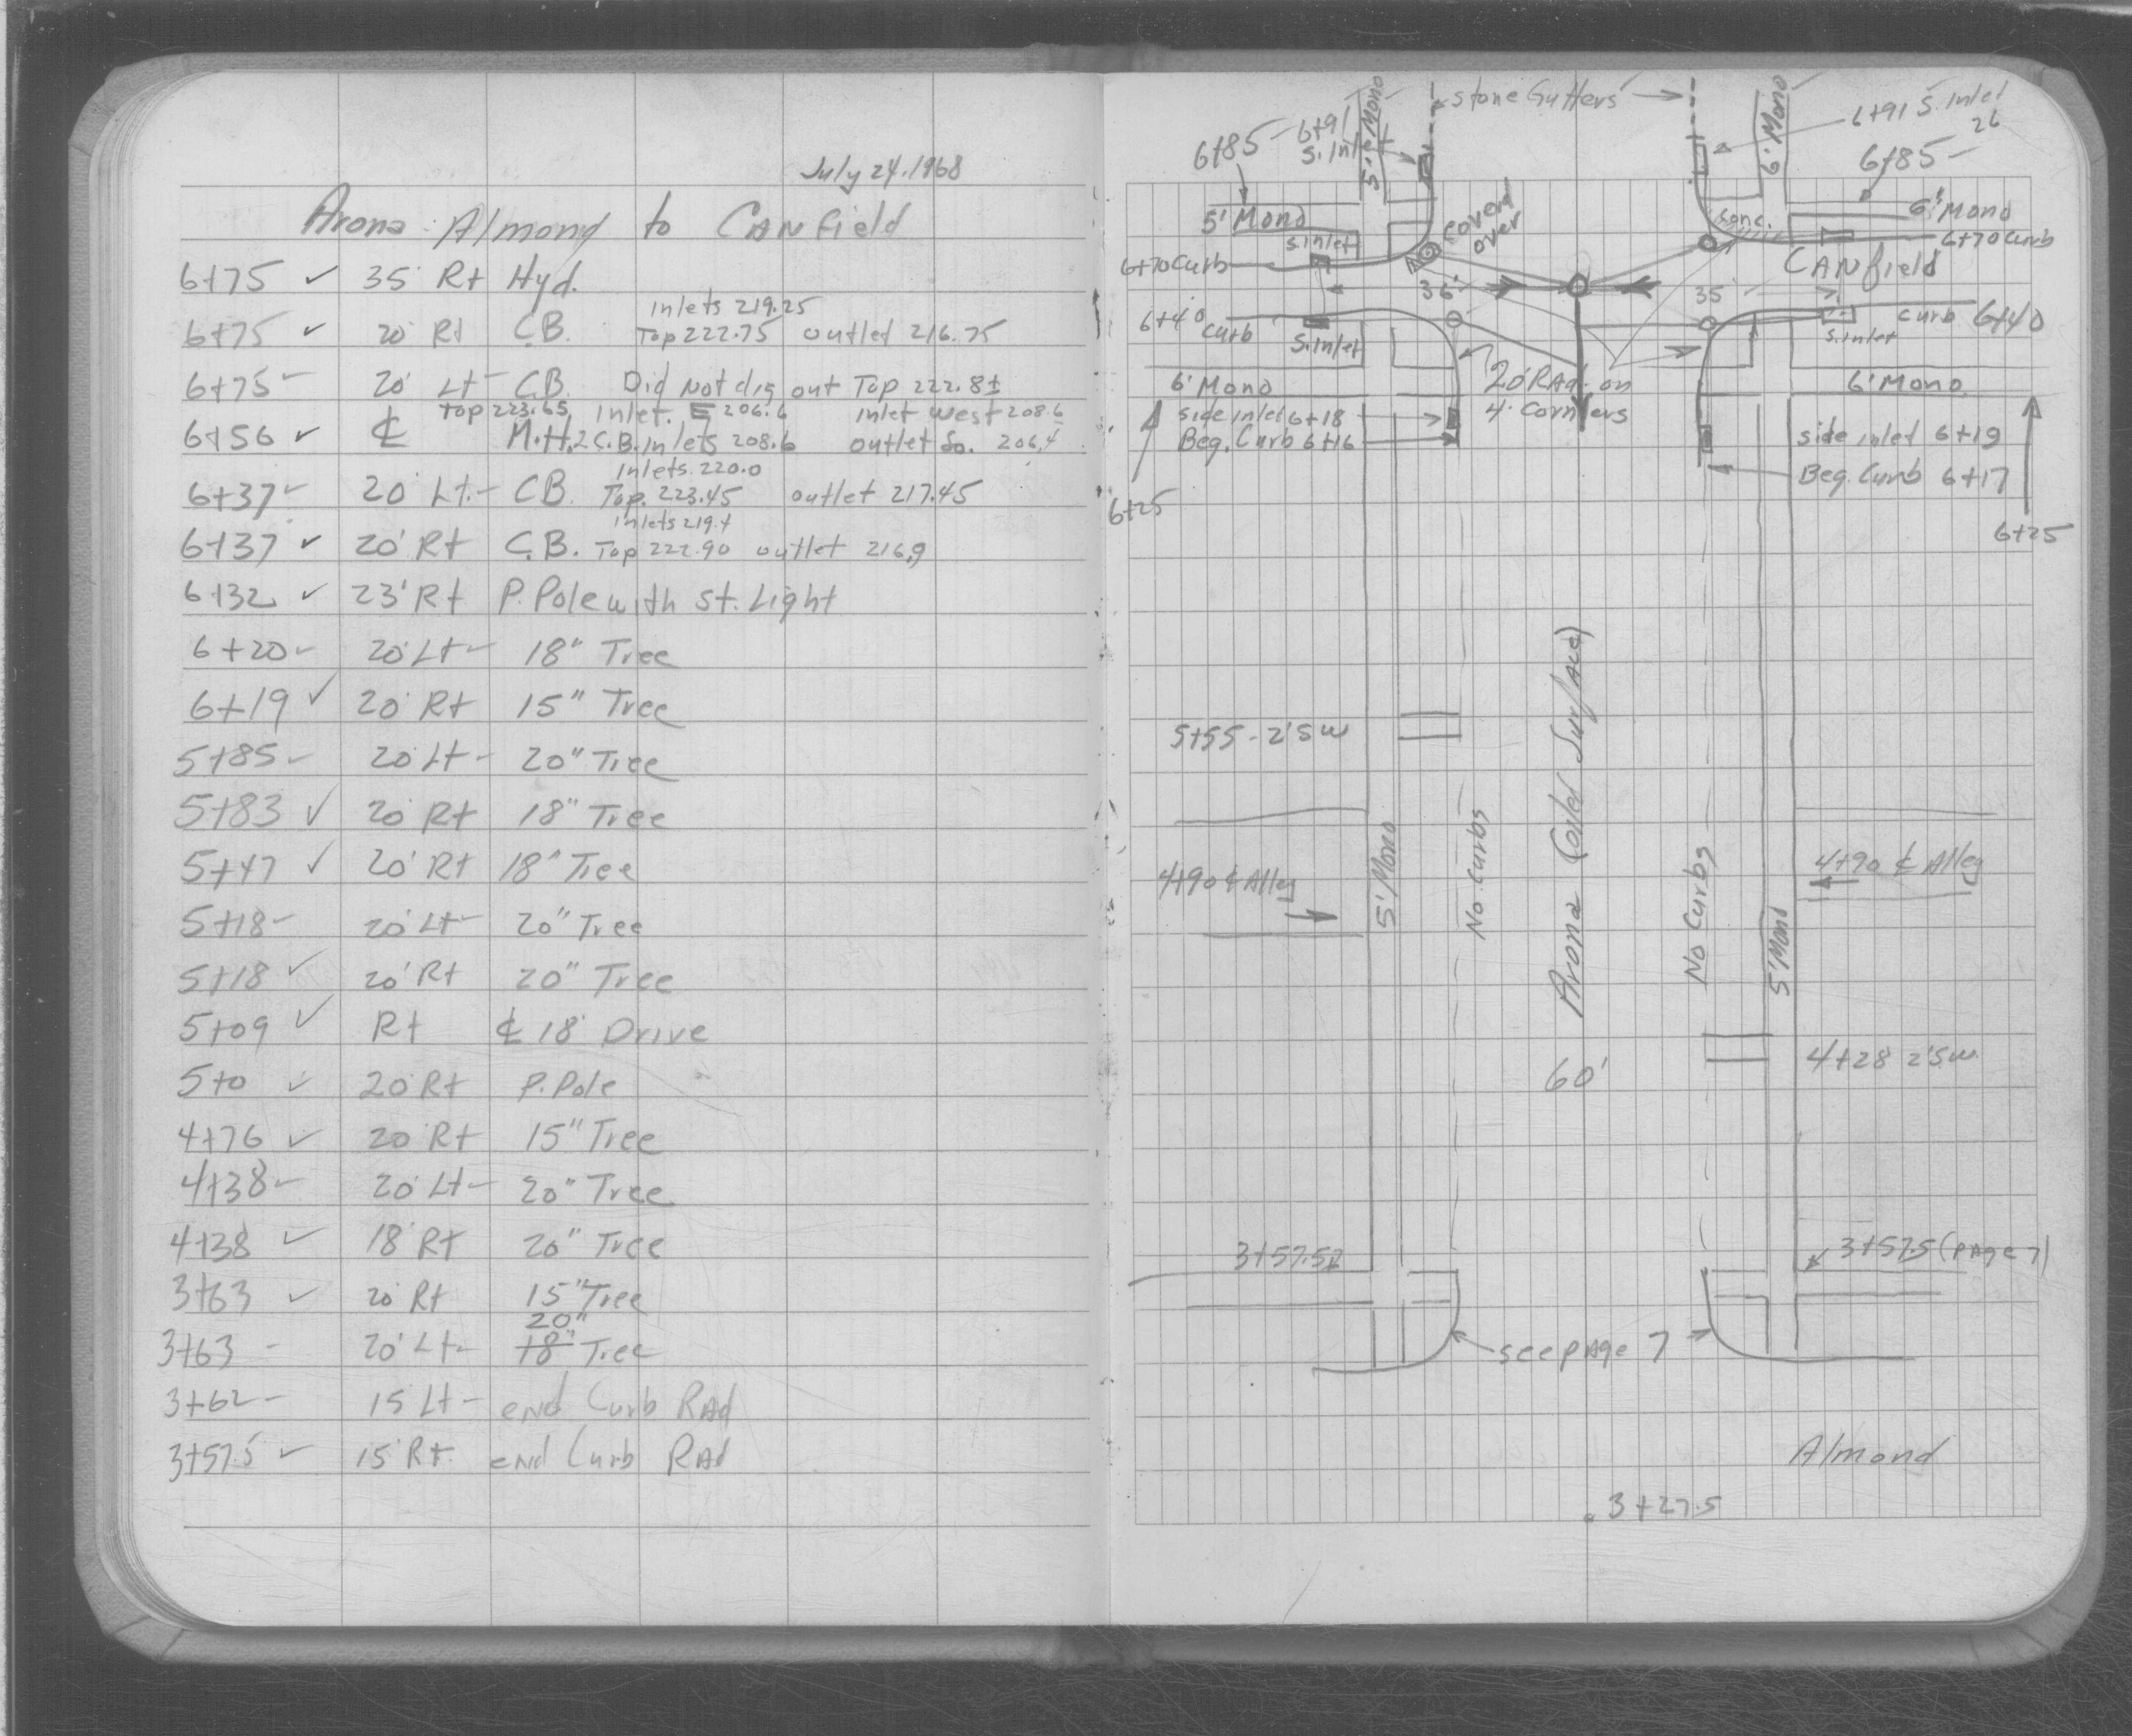 July 24, 1968
Arona Almond to CANfield
6+75 ✓ 35' Rt Hyd.
Inlets 219.25
6+75 ✓ 20' Rt C.B. Top 222.75 outlet 216.75
6+75 - 20' Lt - C.B. Did Not dig out Top 222.8±
Top 223.65 Inlet. E 206.6 Inlet west 208.6
6+56 ✓ ℄ M.H. 2 C.B. Inlets 208.6 outlet So. 206.4
Inlets 220.0
6+37 - 20' Lt. - C.B. Top. 223.45 outlet 217.45
Inlets 219.4
6+37 ✓ 20' Rt C.B. Top 222.90 outlet 216.9
6+32 ✓ 23' Rt P. Pole with St. Light
6+20 - 20' Lt - 18" Tree
6+19 ✓ 20' Rt 15" Tree
5+85 - 20' Lt - 20" Tree
5+83 ✓ 20' Rt 18" Tree
5+47 ✓ 20' Rt 18" Tree
5+18 - 20' Lt - 20" Tree
5+18 ✓ 20' Rt 20" Tree
5+09 ✓ Rt ℄ 18' Drive
5+0 ✓ 20' Rt P. Pole
4+76 ✓ 20' Rt 15" Tree
4+38 - 20' Lt - 20" Tree
4+38 ✓ 18' Rt 20" Tree
3+63 ✓ 20' Rt 15" Tree
20"
3+63 - 20' Lt - 18" Tree
3+62 - 15' Lt - end Curb RAd
3+57.5 ✓ 15' Rt. end Curb RAd
stone Gutters
6+85 -
6+91
S. Inlet
5' Mono
6' Mono
6+91 S. Inlet
26
6+85 -
5' Mono
S. Inlet
covered
over
conc.
6' Mono
6+70 Curb
6+70 curb
CANfield
36'
35'
6+40
Curb
S. Inlet
S. Inlet
Curb 6+40
6' Mono
20' RAd. on
4 Corners
6' Mono
side inlet 6+18
Beg. Curb 6+16
side inlet 6+19
Beg. Curb 6+17
6+25
6+25
5+55 - 2' SW
Arona (Oiled Surface)
4+90 ℄ Alley
5' Mono
No Curbs
No Curbs
5' Mono
4+90 ℄ Alley
60'
4+28 2' SW
3+57.5
3+57.5 (PAge 7)
see PAge 7
Almond
3+27.5